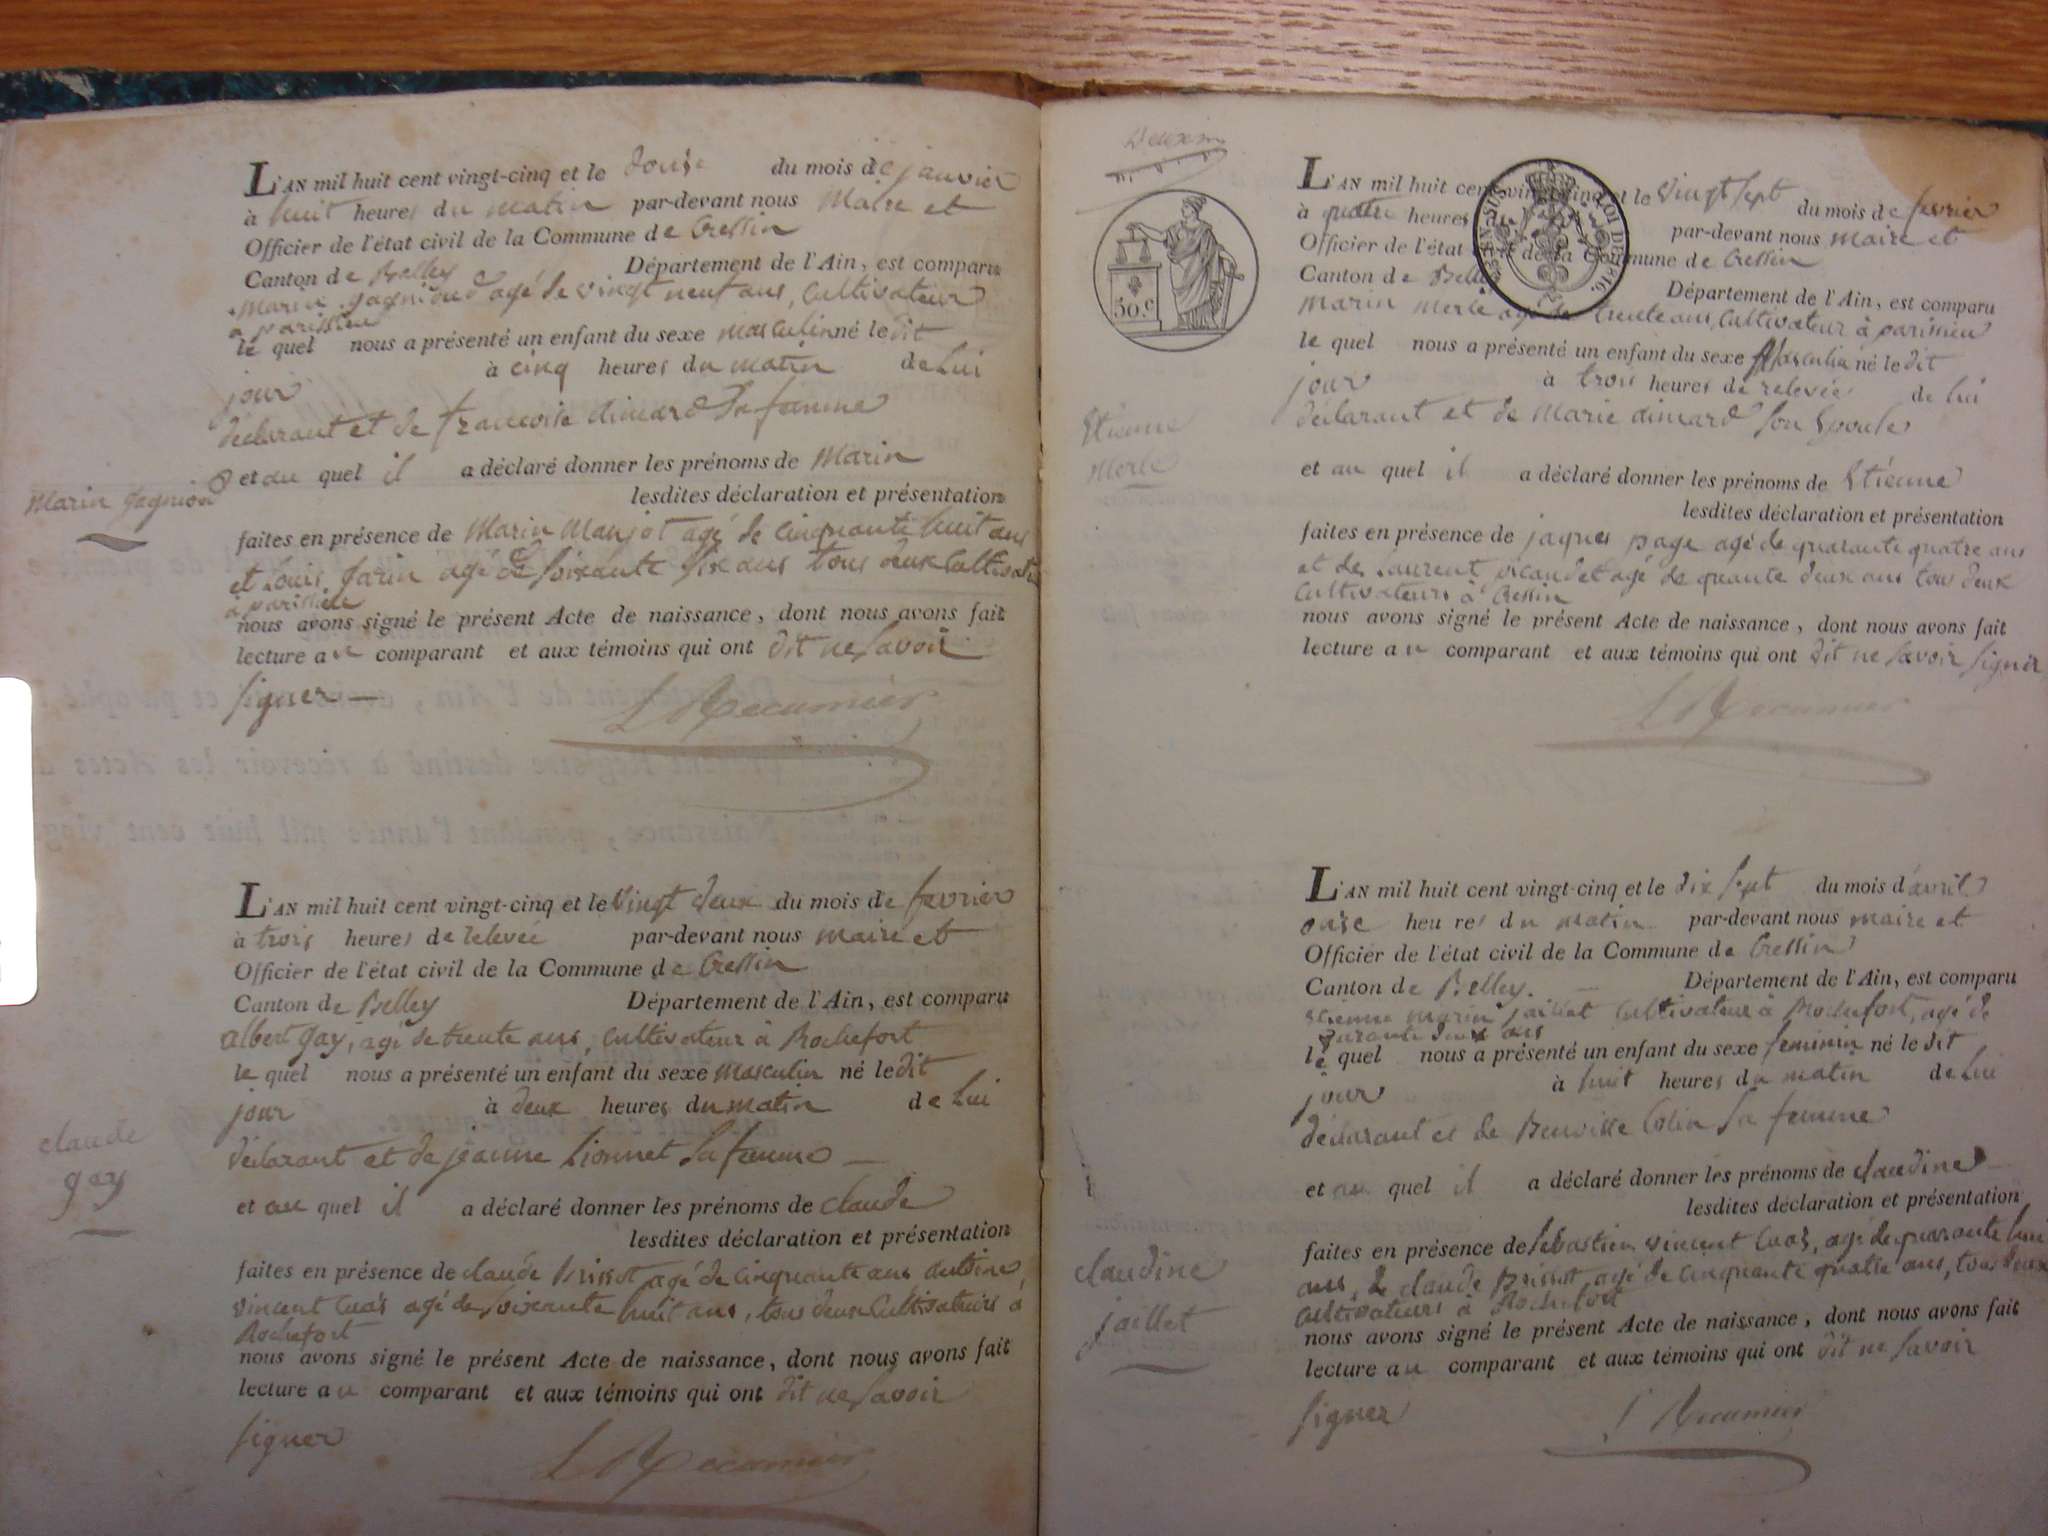 L'AN mil huit cent vingt-cinq et le douse du mois de janvier
à huit heures du matin par-devant nous Maire et
Officier de l'état civil de la Commune de Cressin
Canton de Belley Département de l'Ain, est comparu
Marin gagnioud agé de vingt neuf ans, Cultivateur
a parissieu
le quel nous a présenté un enfant du sexe masculin né le dit
jour à cinq heures du matin de Lui
déclarant et de francoise dimard Sa femme
et au quel il a déclaré donner les prénoms de Marin
lesdites déclaration et présentation
Marin gagnioud
faites en présence de Marin Manjot agé de cinquante huit ans
et Louis Jarin agé de Soixante Six ans tous deux Cultivat
a parissieu
nous avons signé le présent Acte de naissance, dont nous avons fait
lecture au comparant et aux témoins qui ont dit ne Savoir
Signer
L Recamier
L'AN mil huit cent vingt-cinq et le vingt deux du mois de fevrier
à trois heures de relevée par-devant nous maire et
Officier de l'état civil de la Commune de Cressin
Canton de Belley Département de l'Ain, est comparu
albert gay, agé de trente ans, cultivateur à Rochefort
le quel nous a présenté un enfant du sexe masculin né le dit
jour à deux heures du matin de Lui
déclarant et de jeanne Lionnet Sa femme
claude
gay
et au quel il a déclaré donner les prénoms de claude
lesdites déclaration et présentation
faites en présence de claude Brissot agé de cinquante ans antoine
vincent Cuas agé de Soixante huit ans, tous deux Cultivateurs a
Rochefort
nous avons signé le présent Acte de naissance, dont nous avons fait
lecture au comparant et aux témoins qui ont dit ne Savoir
Signer
L Recamier
Deuxm
50.c
L'AN mil huit cent vingt-cinq et le vingt Sept du mois de fevrier
à quatre heures par-devant nous maire et
Officier de l'état civil de la Commune de Cressin
Canton de Belley Département de l'Ain, est comparu
marin merle agé de trente ans, Cultivateur à parissieu
le quel nous a présenté un enfant du sexe Masculin né le dit
jour à trois heures de relevée de lui
déclarant et de Marie dimard Son Epouse
Etienne
Merle
et au quel il a déclaré donner les prénoms de Etienne
lesdites déclaration et présentation
faites en présence de jaques page agé de quarante quatre ans
et de Laurent picaudet agé de quante deux ans tous deux
Cultivateurs a Cressin
nous avons signé le présent Acte de naissance, dont nous avons fait
lecture au comparant et aux témoins qui ont dit ne Savoir Signer
L Recamier
L'AN mil huit cent vingt-cinq et le dix Sept du mois d'avril
onse heures du matin par-devant nous maire et
Officier de l'état civil de la Commune de Cressin
Canton de Belley. Département de l'Ain, est comparu
Etienne marin jaillet Cultivateur à Rochefort, agé de
quarante deux ans
le quel nous a présenté un enfant du sexe feminin né le dit
jour à huit heures du matin de Lui
déclarant et de Benoitte Colin Sa femme
et au quel il a déclaré donner les prénoms de claudine
lesdites déclaration et présentation
claudine
jaillet
faites en présence de Sebastien vincent Cuas, agé de quarante huit
ans, de claude Brissot agé de cinquante quatre ans, tous deux
cultivateurs à Rochefort
nous avons signé le présent Acte de naissance, dont nous avons fait
lecture au comparant et aux témoins qui ont dit ne Savoir
Signer
L Recamier